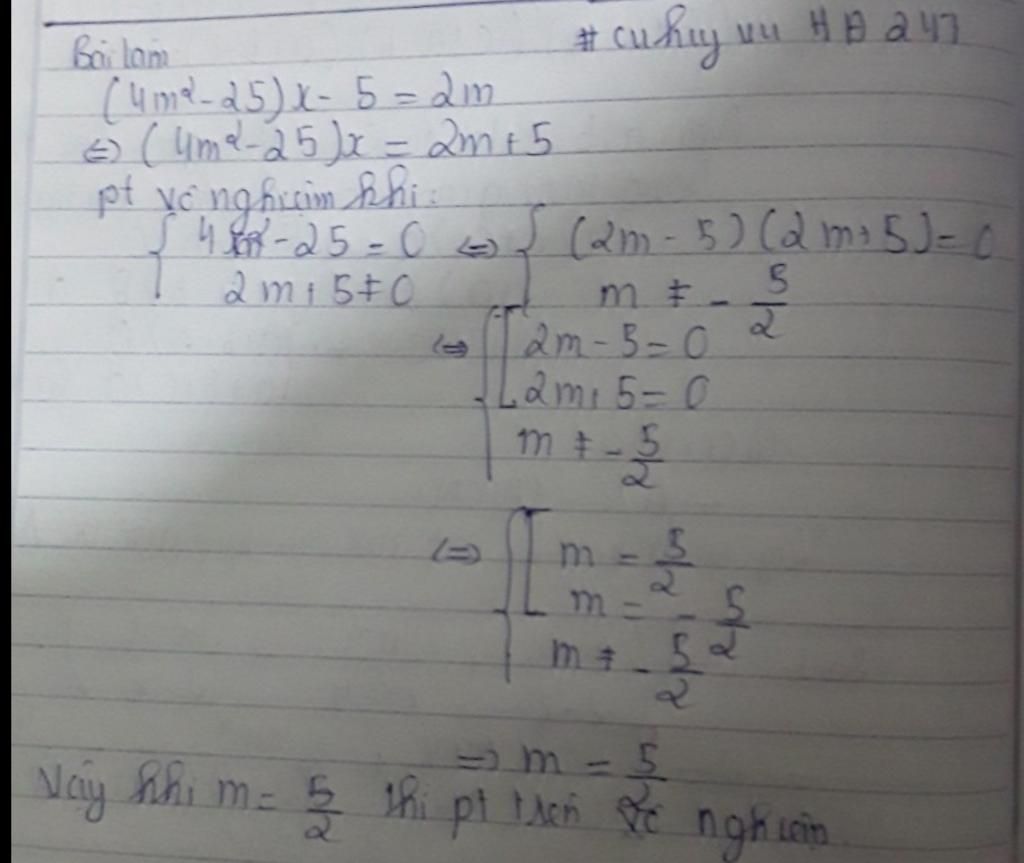 Bài làm
# cuhuy vu HĐ 247
(4m²-25)x - 5 = 2m
⇔ (4m²-25)x = 2m+5
pt vô nghiệm khi:
{ 4m²-25 = 0 ⇔ { (2m-5)(2m+5) = 0
2m+5≠0 m ≠ -5/2
⇔ { [ 2m-5=0
2m+5=0
m ≠ -5/2
⇔ { [ m = 5/2
m = -5/2
m ≠ -5/2
⇒ m = 5/2
Vậy khi m = 5/2 thì pt trên vô nghiệm